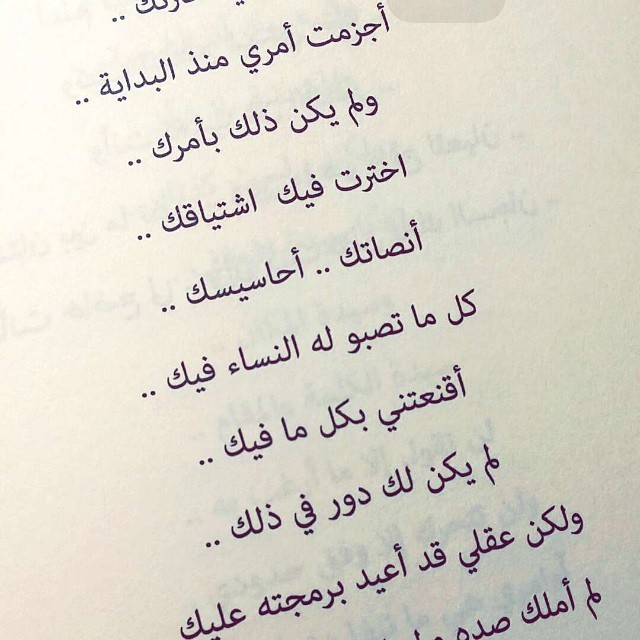 أجزمت أمري منذ البداية ..
ولم يكن ذلك بأمرك ..
اخترت فيك اشتياقك ..
أنصاتك .. أحاسيسك ..
كل ما تصبو له النساء فيك ..
أقنعتني بكل ما فيك ..
لم يكن لك دور في ذلك ..
ولكن عقلي قد أعيد برمجته عليك
لم أملك صده